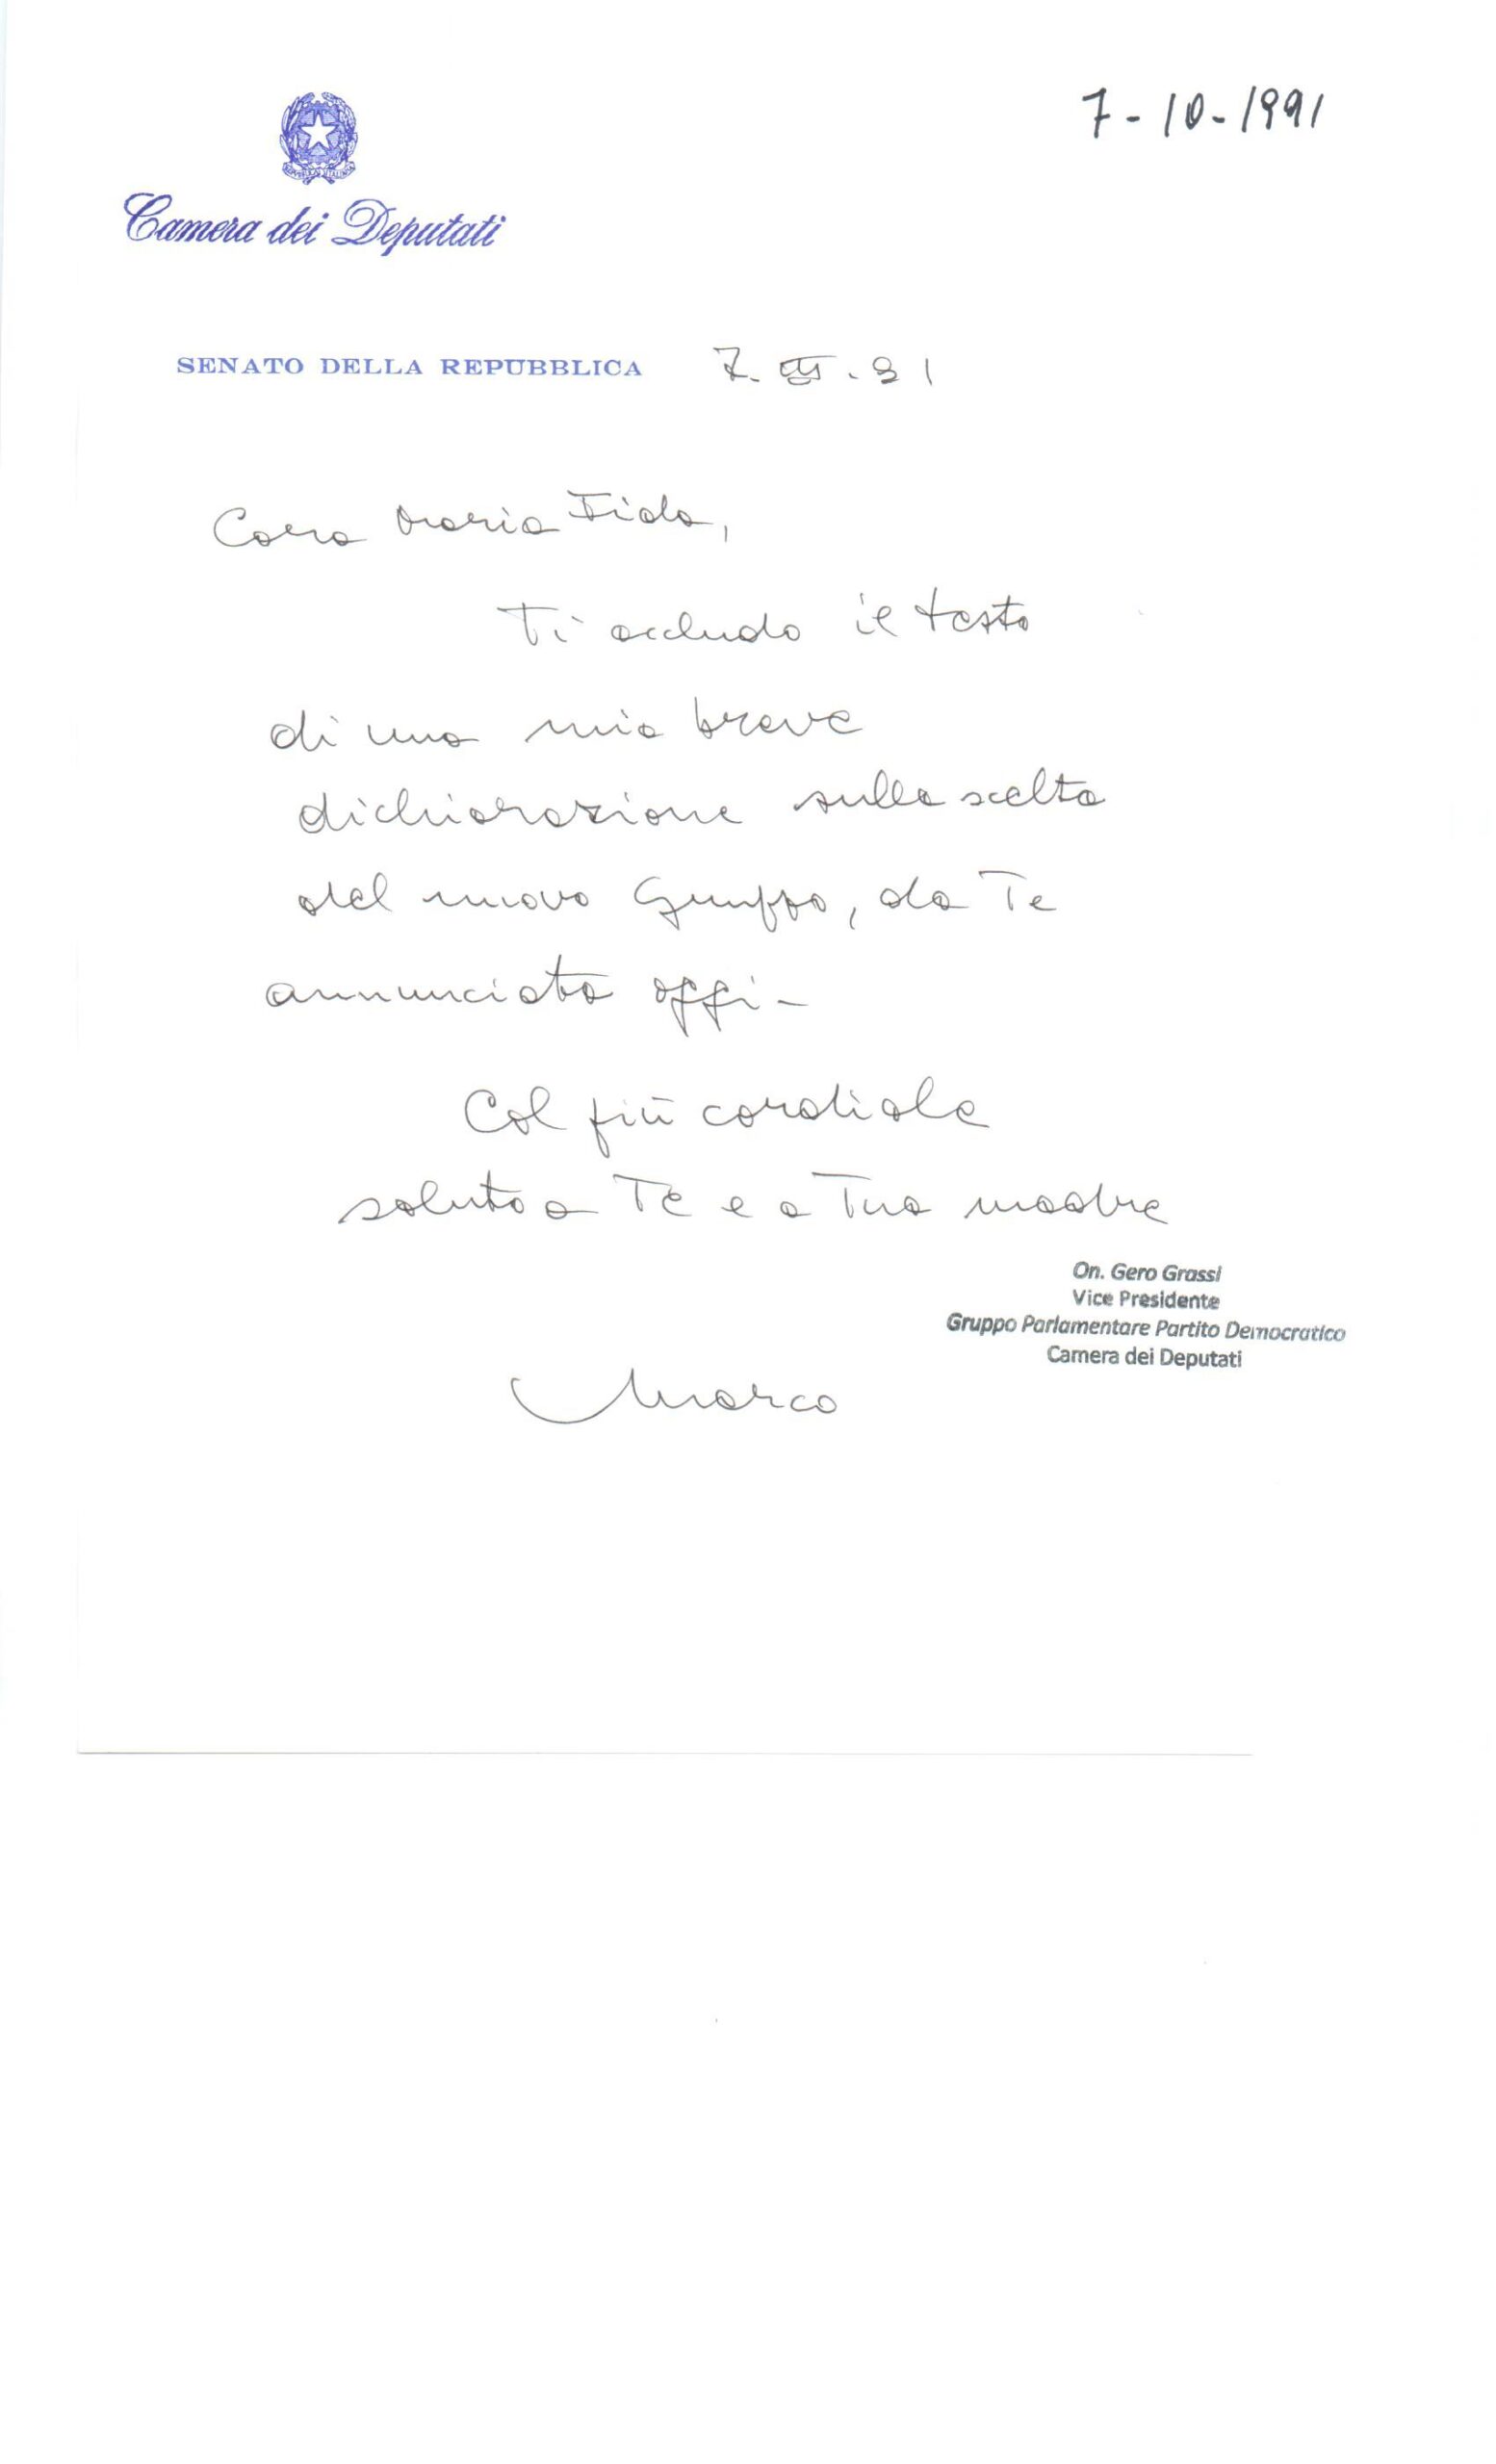 7-10-1991
REPUBBLICA ITALIANA
Camera dei Deputati
SENATO DELLA REPUBBLICA 7. . 91
Cara Maria Fida,
Ti accludo il testo
di una mia breve
dichiarazione sulla scelta
del nuovo Gruppo, da Te
annunciata oggi -
Col più cordiale
saluto a Te e a Tua madre
On. Gero Grassi
Vice Presidente
Gruppo Parlamentare Partito Democratico
Camera dei Deputati
Marco